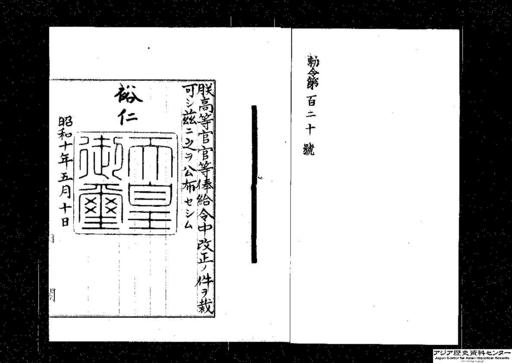 勅令第百二十號
朕高等官官等俸給令中改正ノ件ヲ裁
可シ茲ニ之ヲ公布セシム
裕仁
天皇
御璽
昭和十年五月十日
アジア歴史資料センター
Japan Center for Asian Historical Records